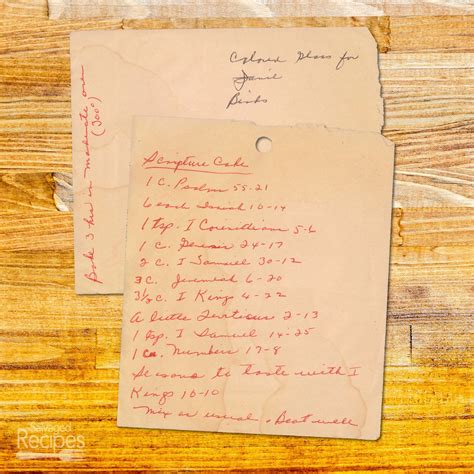 Colored Glass for
Bake 3 hrs in moderate oven
(300°)
Scripture Cake
1 C. Psalm 55-21
6 each Isaiah 10-14
1 tsp. I Corinthians 5-6
1 C. Genesis 24-17
2 C. I Samuel 30-12
2 C. Jeremiah 6-20
3 1/2 C. I Kings 4-22
A little Leviticus 2-13
1 tsp. I Samuel 14-25
Numbers 17-8
Seasons to taste with I
Kings 10-10
Mix as usual. Beat well
Salvaged
Recipes